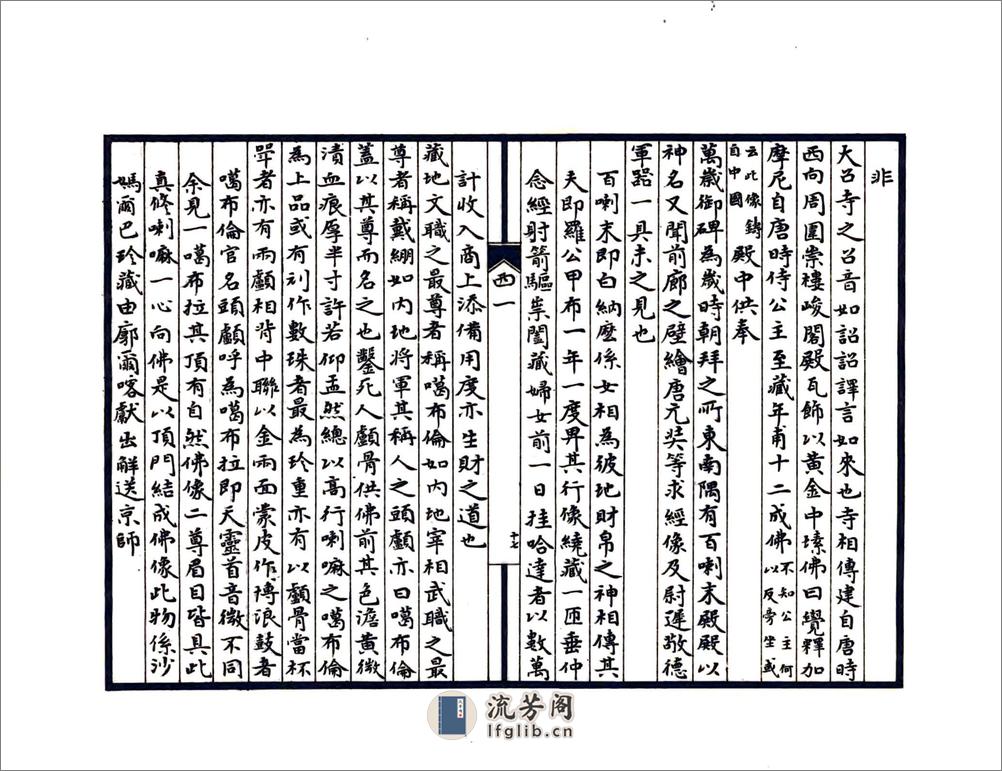 非
大召寺之召音如詔詔譯言如來也寺相傳建自唐時
西向周圍崇樓峻閣殿瓦飾以黃金中塐佛曰覺釋加
摩尼自唐時侍公主至藏年甫十二成佛不知公主何以反旁坐或
云此像鑄自中國殿中供奉
萬歲御碑為歲時朝拜之所東南隅有百喇末殿殿以
神名又聞前廊之壁繪唐元奘等求經像及尉遲敬德
軍器一具未之見也
百喇末即白納麽係女相為彼地財帛之神相傳其
夫即羅公甲布一年一度畀其行像繞藏一匝垂仲
念經射箭驅祟闔藏婦女前一日挂哈達者以數萬
計收入商上添備用度亦生財之道也
藏地文職之最尊者稱噶布倫如內地宰相武職之最
尊者稱戴綳如內地將軍其稱人之頭顱亦曰噶布倫
蓋以其尊而名之也鑿死人顱骨供佛前其色澹黃微
漬血痕厚半寸許若仰盂然總以高行喇嘛之噶布倫
為上品或有刓作數珠者最為珍重亦有以顱骨當杯
斝者亦有兩顱相背中聯以金兩面蒙皮作摶浪鼓者
噶布倫官名頭顱呼為噶布拉即天靈首音微不同
余見一噶布拉其頂有自然佛像二尊眉目皆具此
真修喇嘛一心向佛是以頂門結成佛像此物係沙
嗎爾巴珍藏由廓爾喀獻出解送京師
西一
十七
流芳阁
lfglib.cn